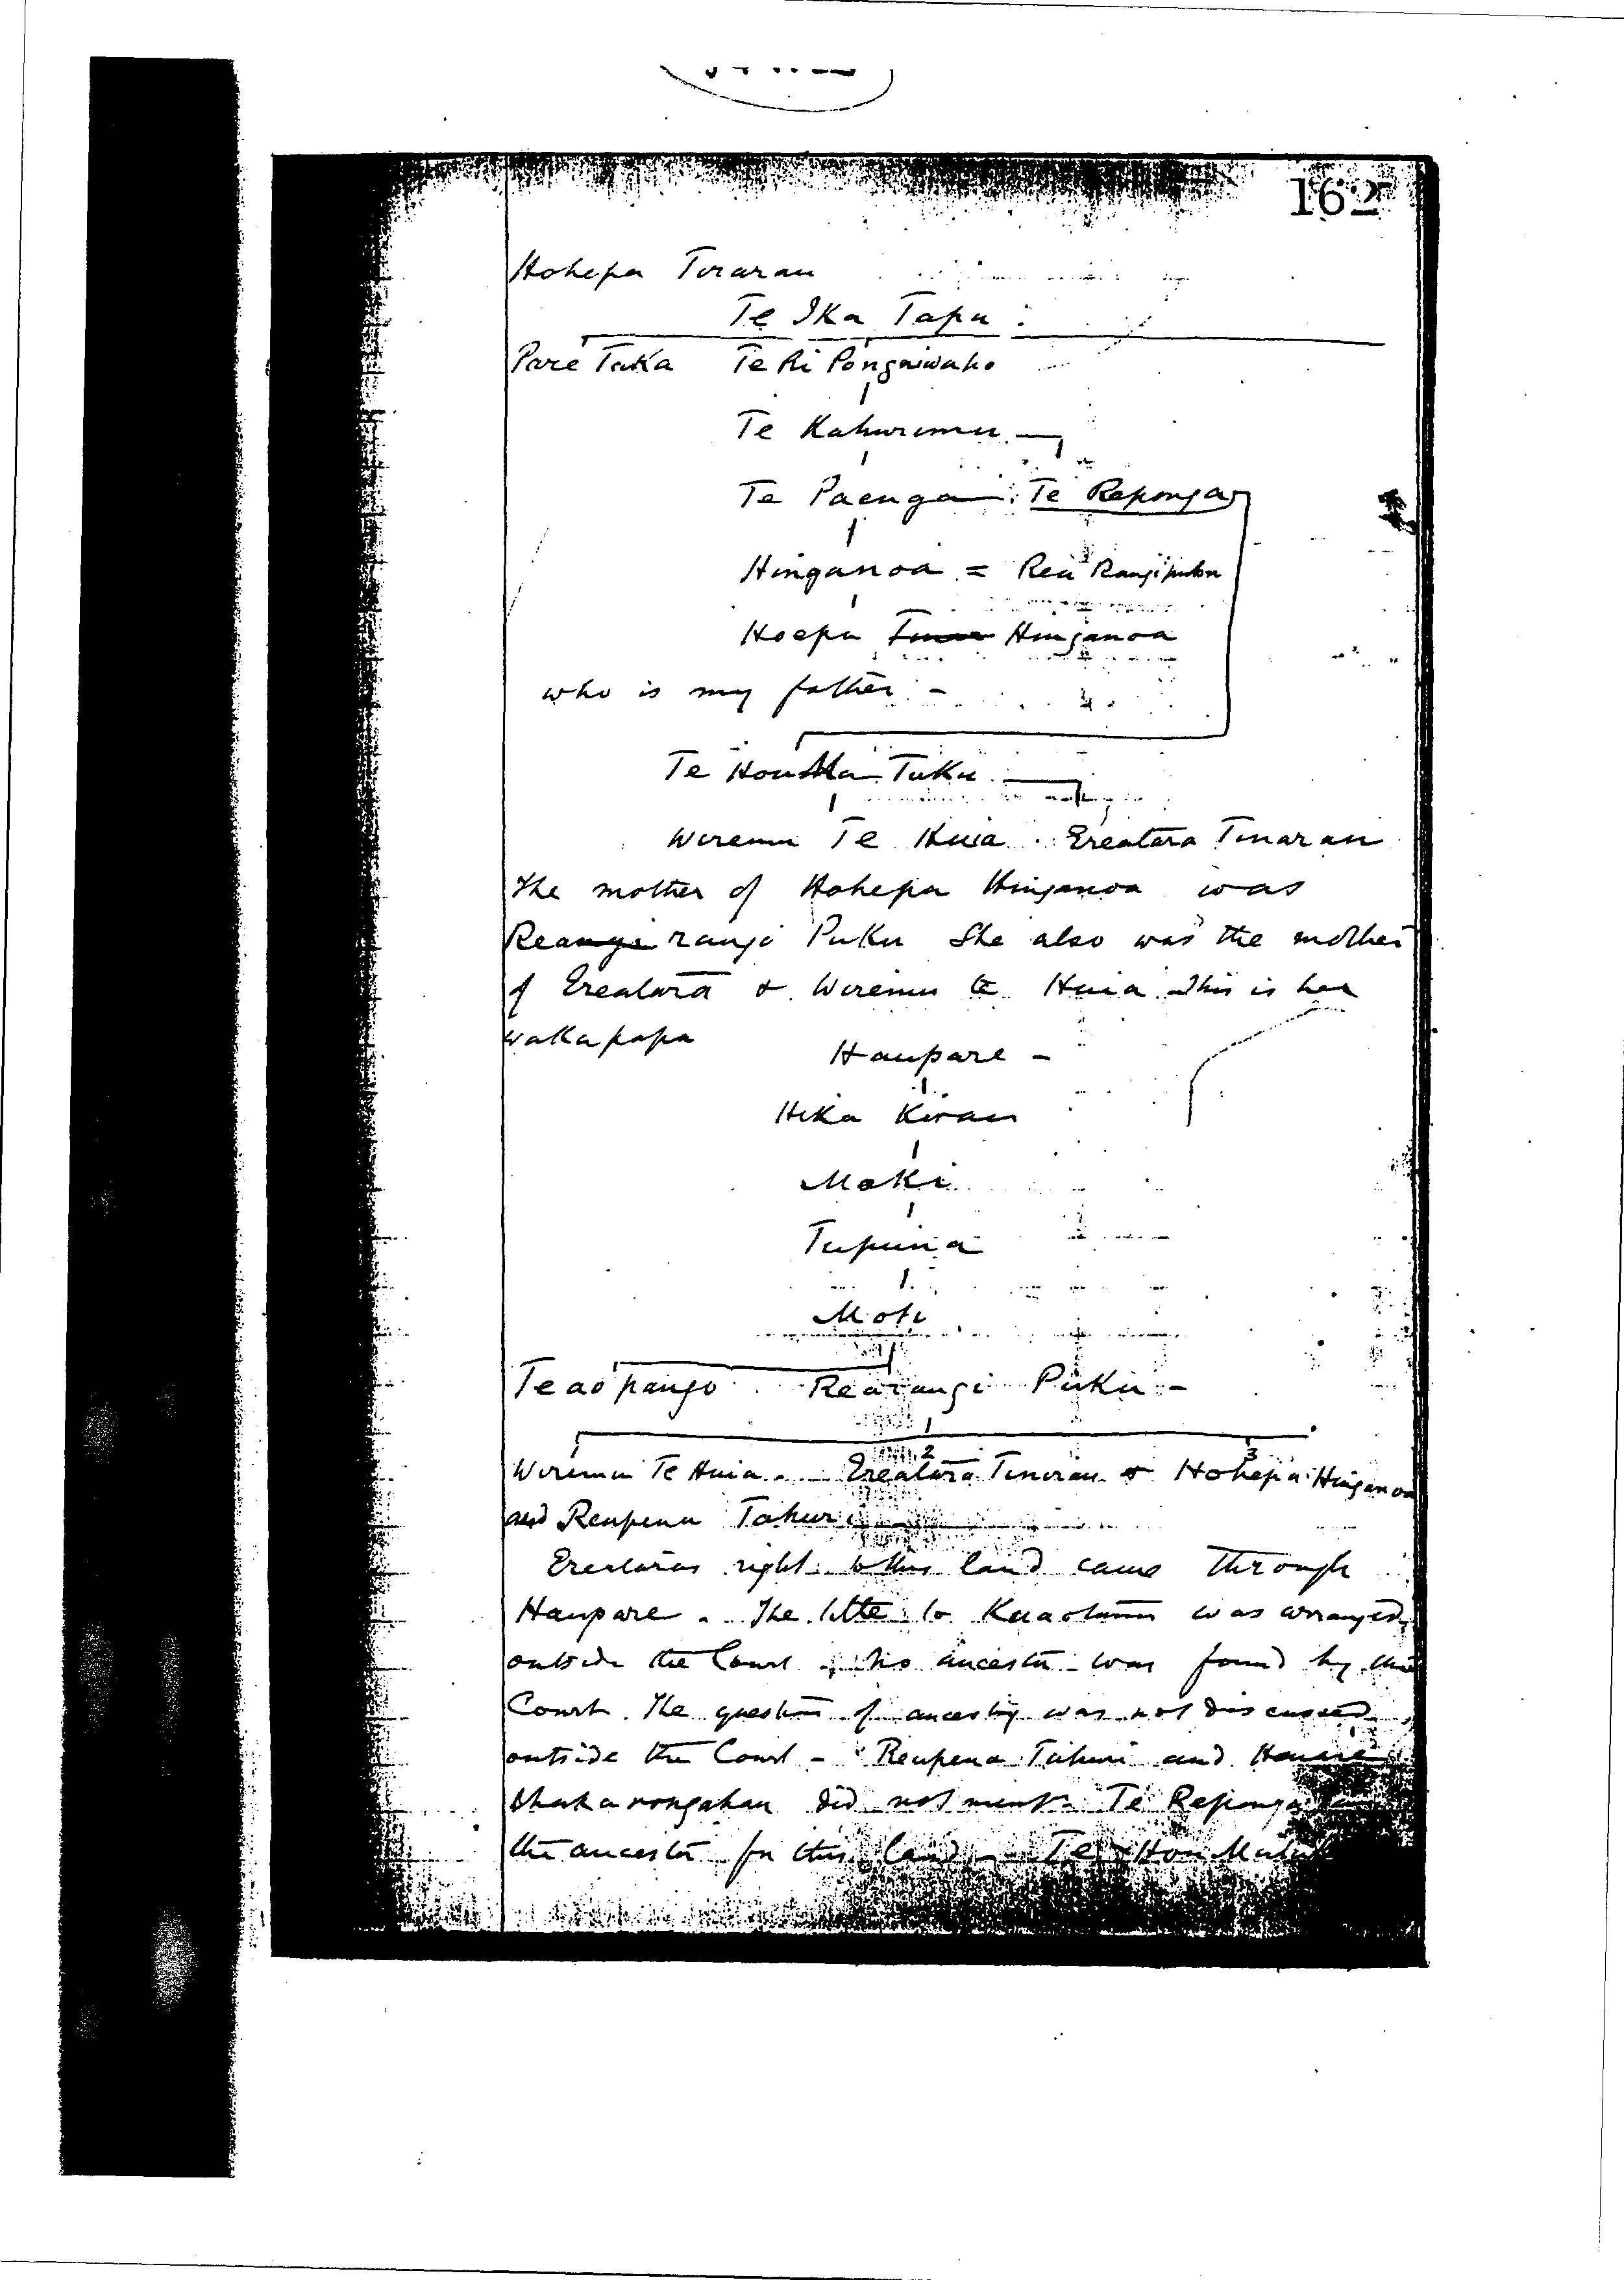 162
Hohepa Tiraran
Te Ika Tapu :
Pare Taka Te Ri Pongaiwaho
Te Kahurimu
Te Paenga Te Reponga
Hinganoa = Rea Rangipuku
Hoepa Hinganoa
who is my father -
Te Hou Tuku
Wiremu Te Huia. Ereatara Tinarau
The mother of Hohepa Hinganoa was
rangi Puku She also was the mother
of Ereatara & Wiremu te Huia This is her
wakapapa
Haupare -
Hika Kirau
Maki
Tupuna
Moti
Teaopango Rearangi Puku -
2 3
Wiremu Te Huia. Ereatara Tinirau & Hohepa Hinganoa
and Reupena Tahuri
Ereataras right to this land came through
Haupare. The title to was arranged
outside the Court, his ancestor was found by the
Court. The question of ancestry was not discussed
outside the Court - Reupena Tahuri and
Whakarongahau did not ment. Te Reponga
the ancestor for this land - Te Hou